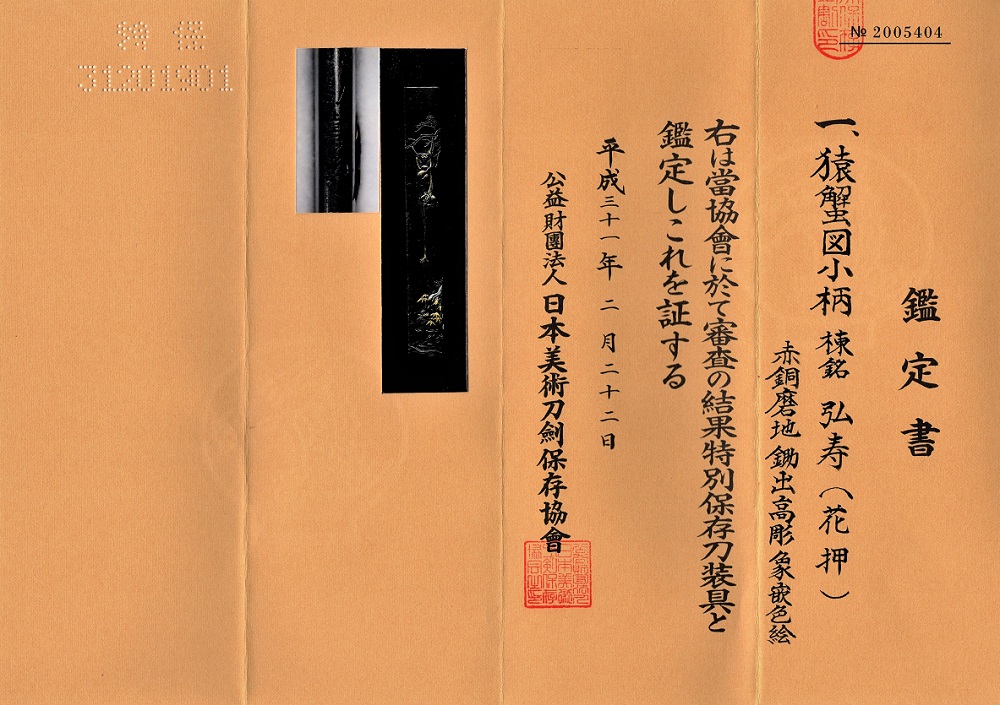 № 2005404
鑑定書
一、猿蟹図小柄 棟銘 弘寿（花押）
赤銅磨地 鋤出高彫 象嵌色絵
右は當協會に於て審査の結果特別保存刀装具と
鑑定しこれを証する
平成三十一年 二月二十二日
公益財團法人 日本美術刀劍保存協會
31201901